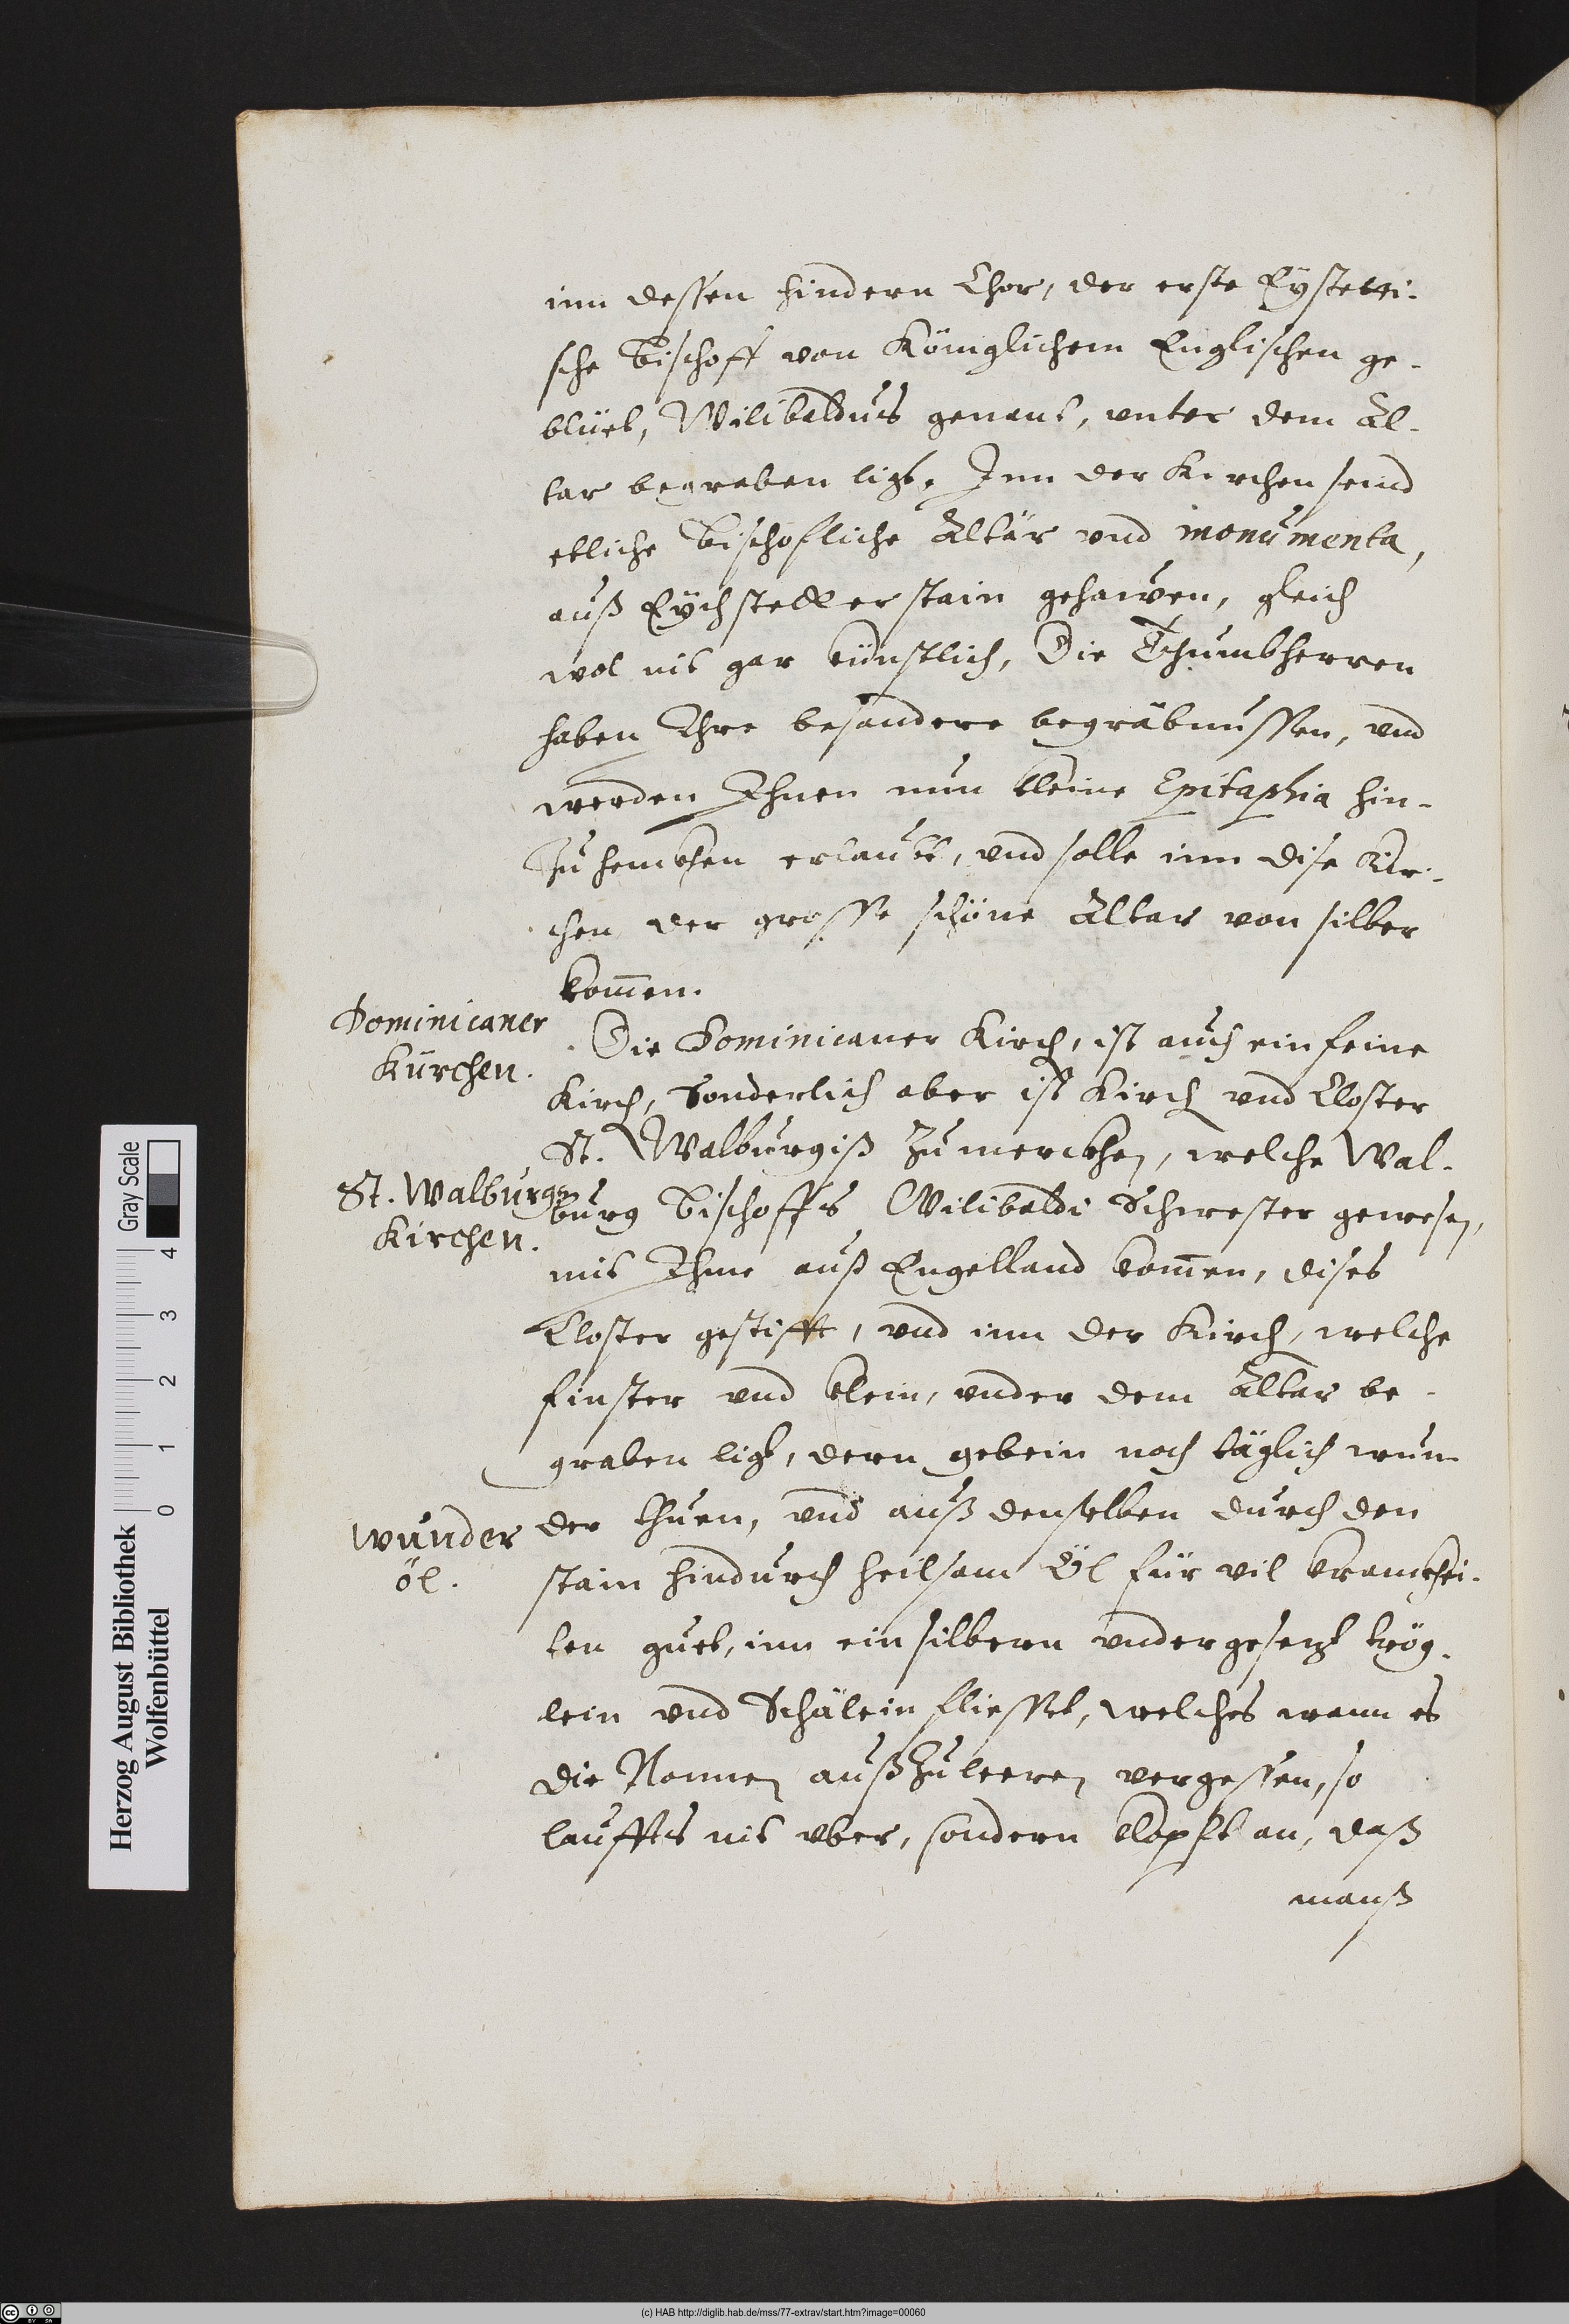 inn dessen hindern Chor, der erste Eystetti-
sche Bischoff von Königlichem Englischen ge-
blüet, Wilibaldus genant, unter dem Al-
tar begraben ligt. Inn der Kirchen seind
etliche Bischofliche Altär und monumenta,
auß Eychstetter stain gehawen, gleich
wol nit gar künstlich, Die Thumbherren
haben Ihre besondere begräbnussen, und
werden Ihnen nun kleine Epitaphia hin-
zu henckhen erlaubt, und solle inn dise Kir-
chen der grosse schöne Altar von silber
kom̄en.
Dominicaner
Kürchen.
Die Dominicaner Kirch, ist auch ein feine
Kirch, Sonderlich aber ist Kirch und Closter
St. Walburgiß zu merckhen, welche Wal-
St. Walburgs
Kirchen.
burg Bischoffs Wilibaldi Schwester gewesen,
mit Ihme auß Engelland kom̄en, dises
Closter gestifft, und inn der Kirch, welche
finster und klein, under dem Altar be-
graben ligt, dern gebein noch täglich wun-
wunder
öl.
der thuen, und auß denselben durch den
stain hindurch heilsam Öl für vil kranckhei-
ten guet, inn ein silbern undergesetzt trög-
lein und Schälein fliesset, welches wann es
die Nonnen außzuleeren vergessen, so
laufftes nit uber, sondern klopft an, daß
manß
Herzog August Bibliothek
Wolfenbüttel
Gray Scale
0 1 2 3 4
(c) HAB http://diglib.hab.de/mss/77-extrav/start.htm?image=00060